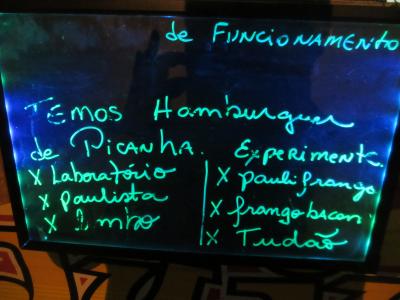 de FUNCIONAMENTO
TEMOS Hamburguer
de PICANHA. EXPERIMENTE.
X Laboratório | X paulifrango
X paulista | X frangobacan
X | X Tudão